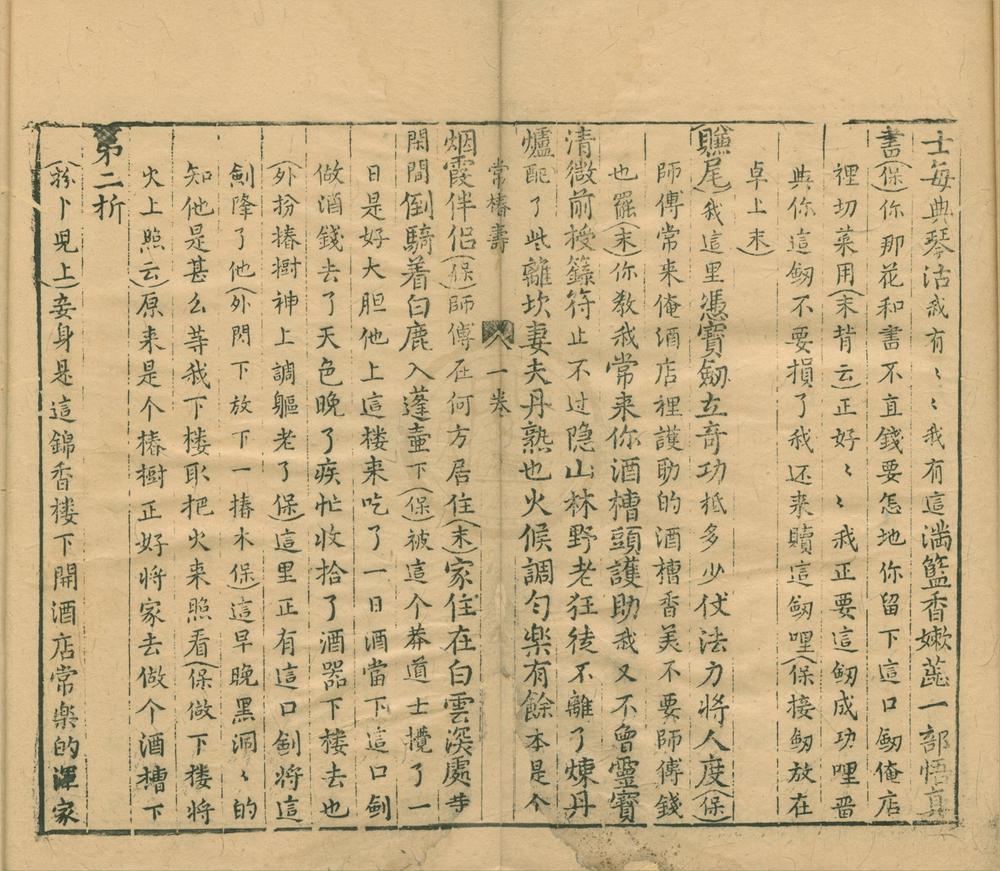 士每典琴沽我有〻〻我有這満籃香嫩蔬一部悟真
書(保)你那花和書不直錢要怎地你留下這口劒俺店
裡切菜用(末背云)正好〻〻我正要這劒成功哩畱
與你這劒不要損了我还来贖這劒哩(保接劒放在
卓上末)
賺尾(我這里憑寶劒立奇功抵多少仗法力將人度(保)
師傅常来俺酒店裡護助的酒槽香美不要師傅錢
也罷(末)你教我常来你酒槽頭護助我又不曾靈寶
清微前授籙符止不过隐山林野老狂徒不離了煉丹
爐配了些離坎妻夫丹熟也火候調匀楽有餘本是个
常椿壽 一卷 八
烟霞伴侣(保)師傅在何方居住(末)家住在白雲深處寺
閑間倒騎着白鹿入蓬壷下(保)被這个莽道士攪了一
日是好大胆他上這楼来吃了一日酒當下這口劍
做酒錢去了天色晚了疾忙收拾了酒器下楼去也
(外扮椿樹神上調軀老了(保)這里正有這口劍將這
劍降了他(外閃下放下一椿木(保)這早晚黑洞〻的
知他是甚么等我下楼取把火来照看(保做下楼將
火上照云)原来是个椿樹正好將家去做个酒槽下
第二折
(扮卜児上)妾身是這錦香楼下開酒店常楽的渾家